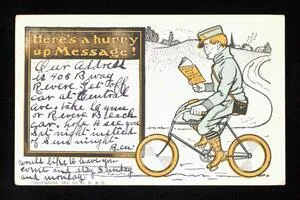 Here's a hurry
up Message!
Our address
is 406 B'way
Revere. Get off
car at Central
Ave. take Lynn
or Revere Beach
car. Hope to see you
Sat night instead
of Sund night.
Ben
would like to have you
come and stay Sunday
and monday